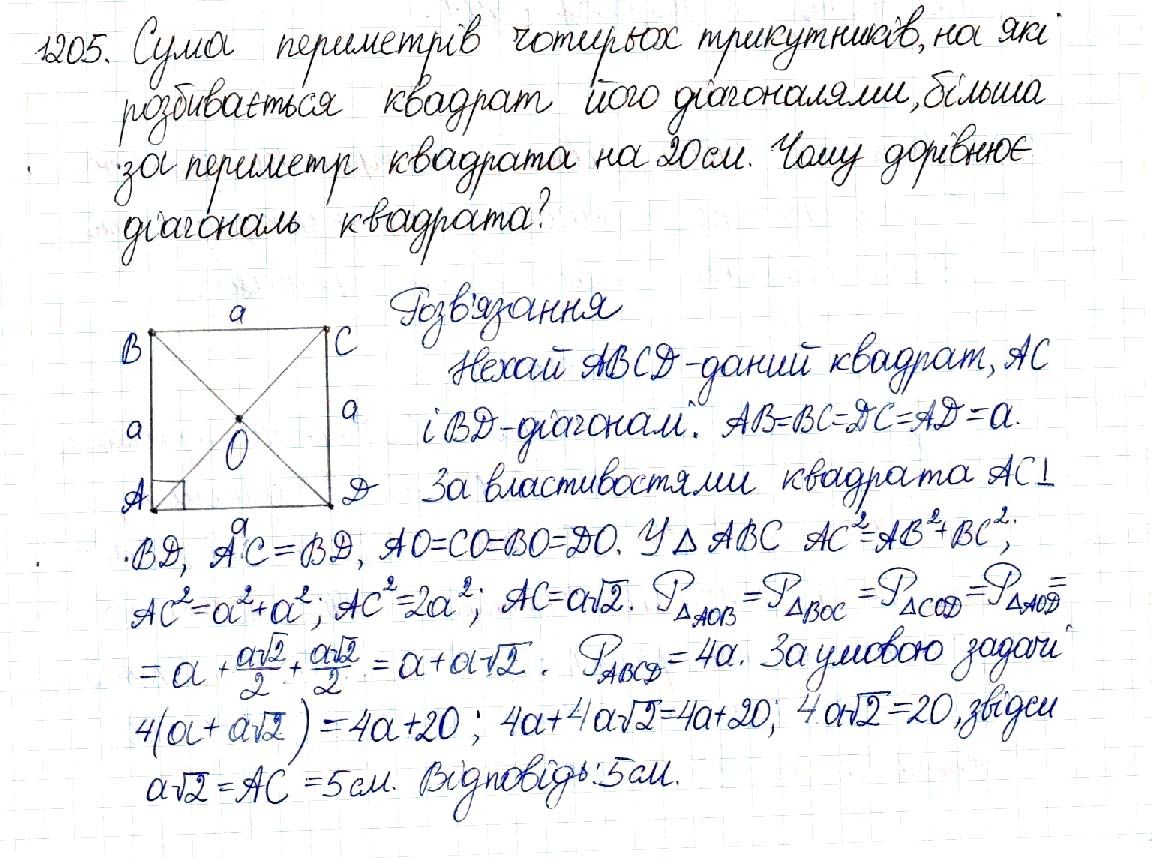 1205. Сума периметрів чотирьох трикутників, на які
розбивається квадрат його діагоналями, більша
за периметр квадрата на 20 см. Чому дорівнює
діагональ квадрата?
Розв'язання
a
B
C
Нехай ABCD - даний квадрат, AC
a
a
і BD - діагоналі. AB=BC=DC=AD=a.
O
A
D
За властивостями квадрата AC⊥
a
BD, AC=BD, AO=CO=BO=DO. У △ABC AC²=AB²+BC²;
AC²=a²+a²; AC²=2a²; AC=a√2. P△AOB=P△BOC=P△COD=P△AOD=
=a+a√2/2+a√2/2=a+a√2. PABCD=4a. За умовою задачі
4(a+a√2)=4a+20; 4a+4a√2=4a+20; 4a√2=20, звідси
a√2=AC=5см. Відповідь: 5см.